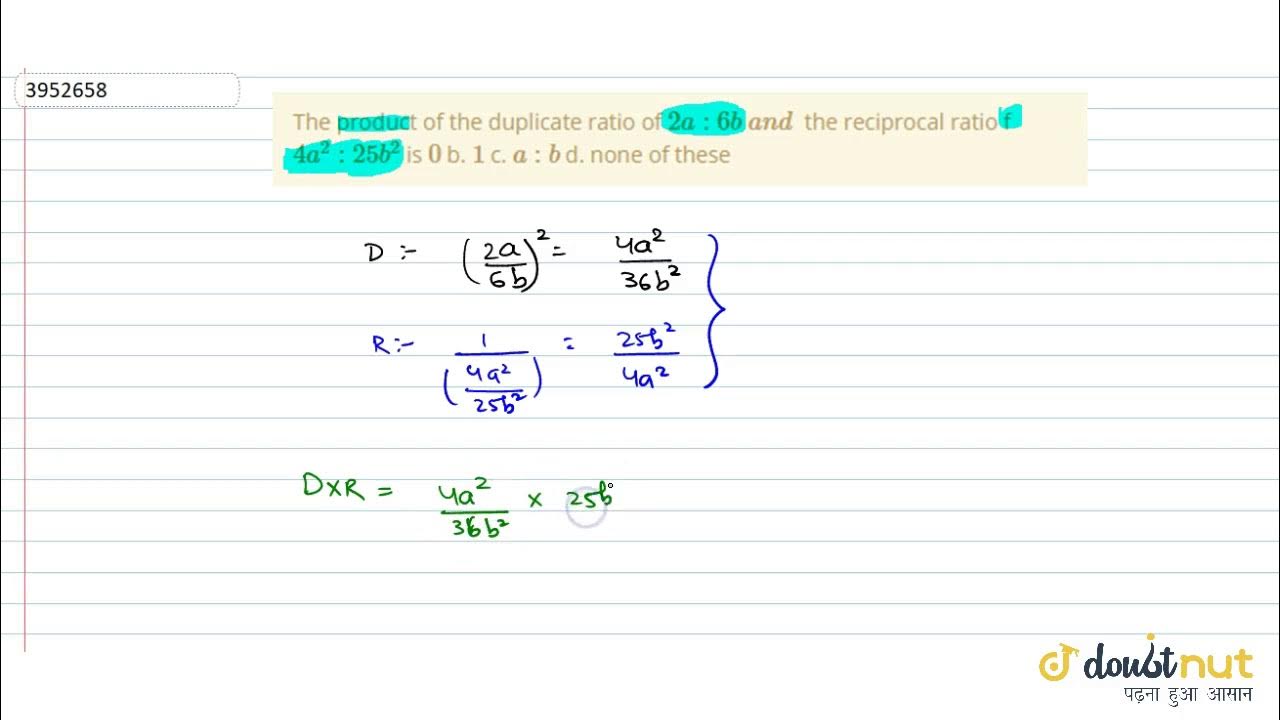 3952658
The product of the duplicate ratio of 2a : 6b and the reciprocal ratio f
4a² : 25b² is 0 b. 1 c. a : b d. none of these
D :- (2a/6b)² = 4a²/36b²
R :- 1/(4a²/25b²) = 25b²/4a²
D×R = 4a²/36b² × 25b
doubtnut
पढ़ना हुआ आसान